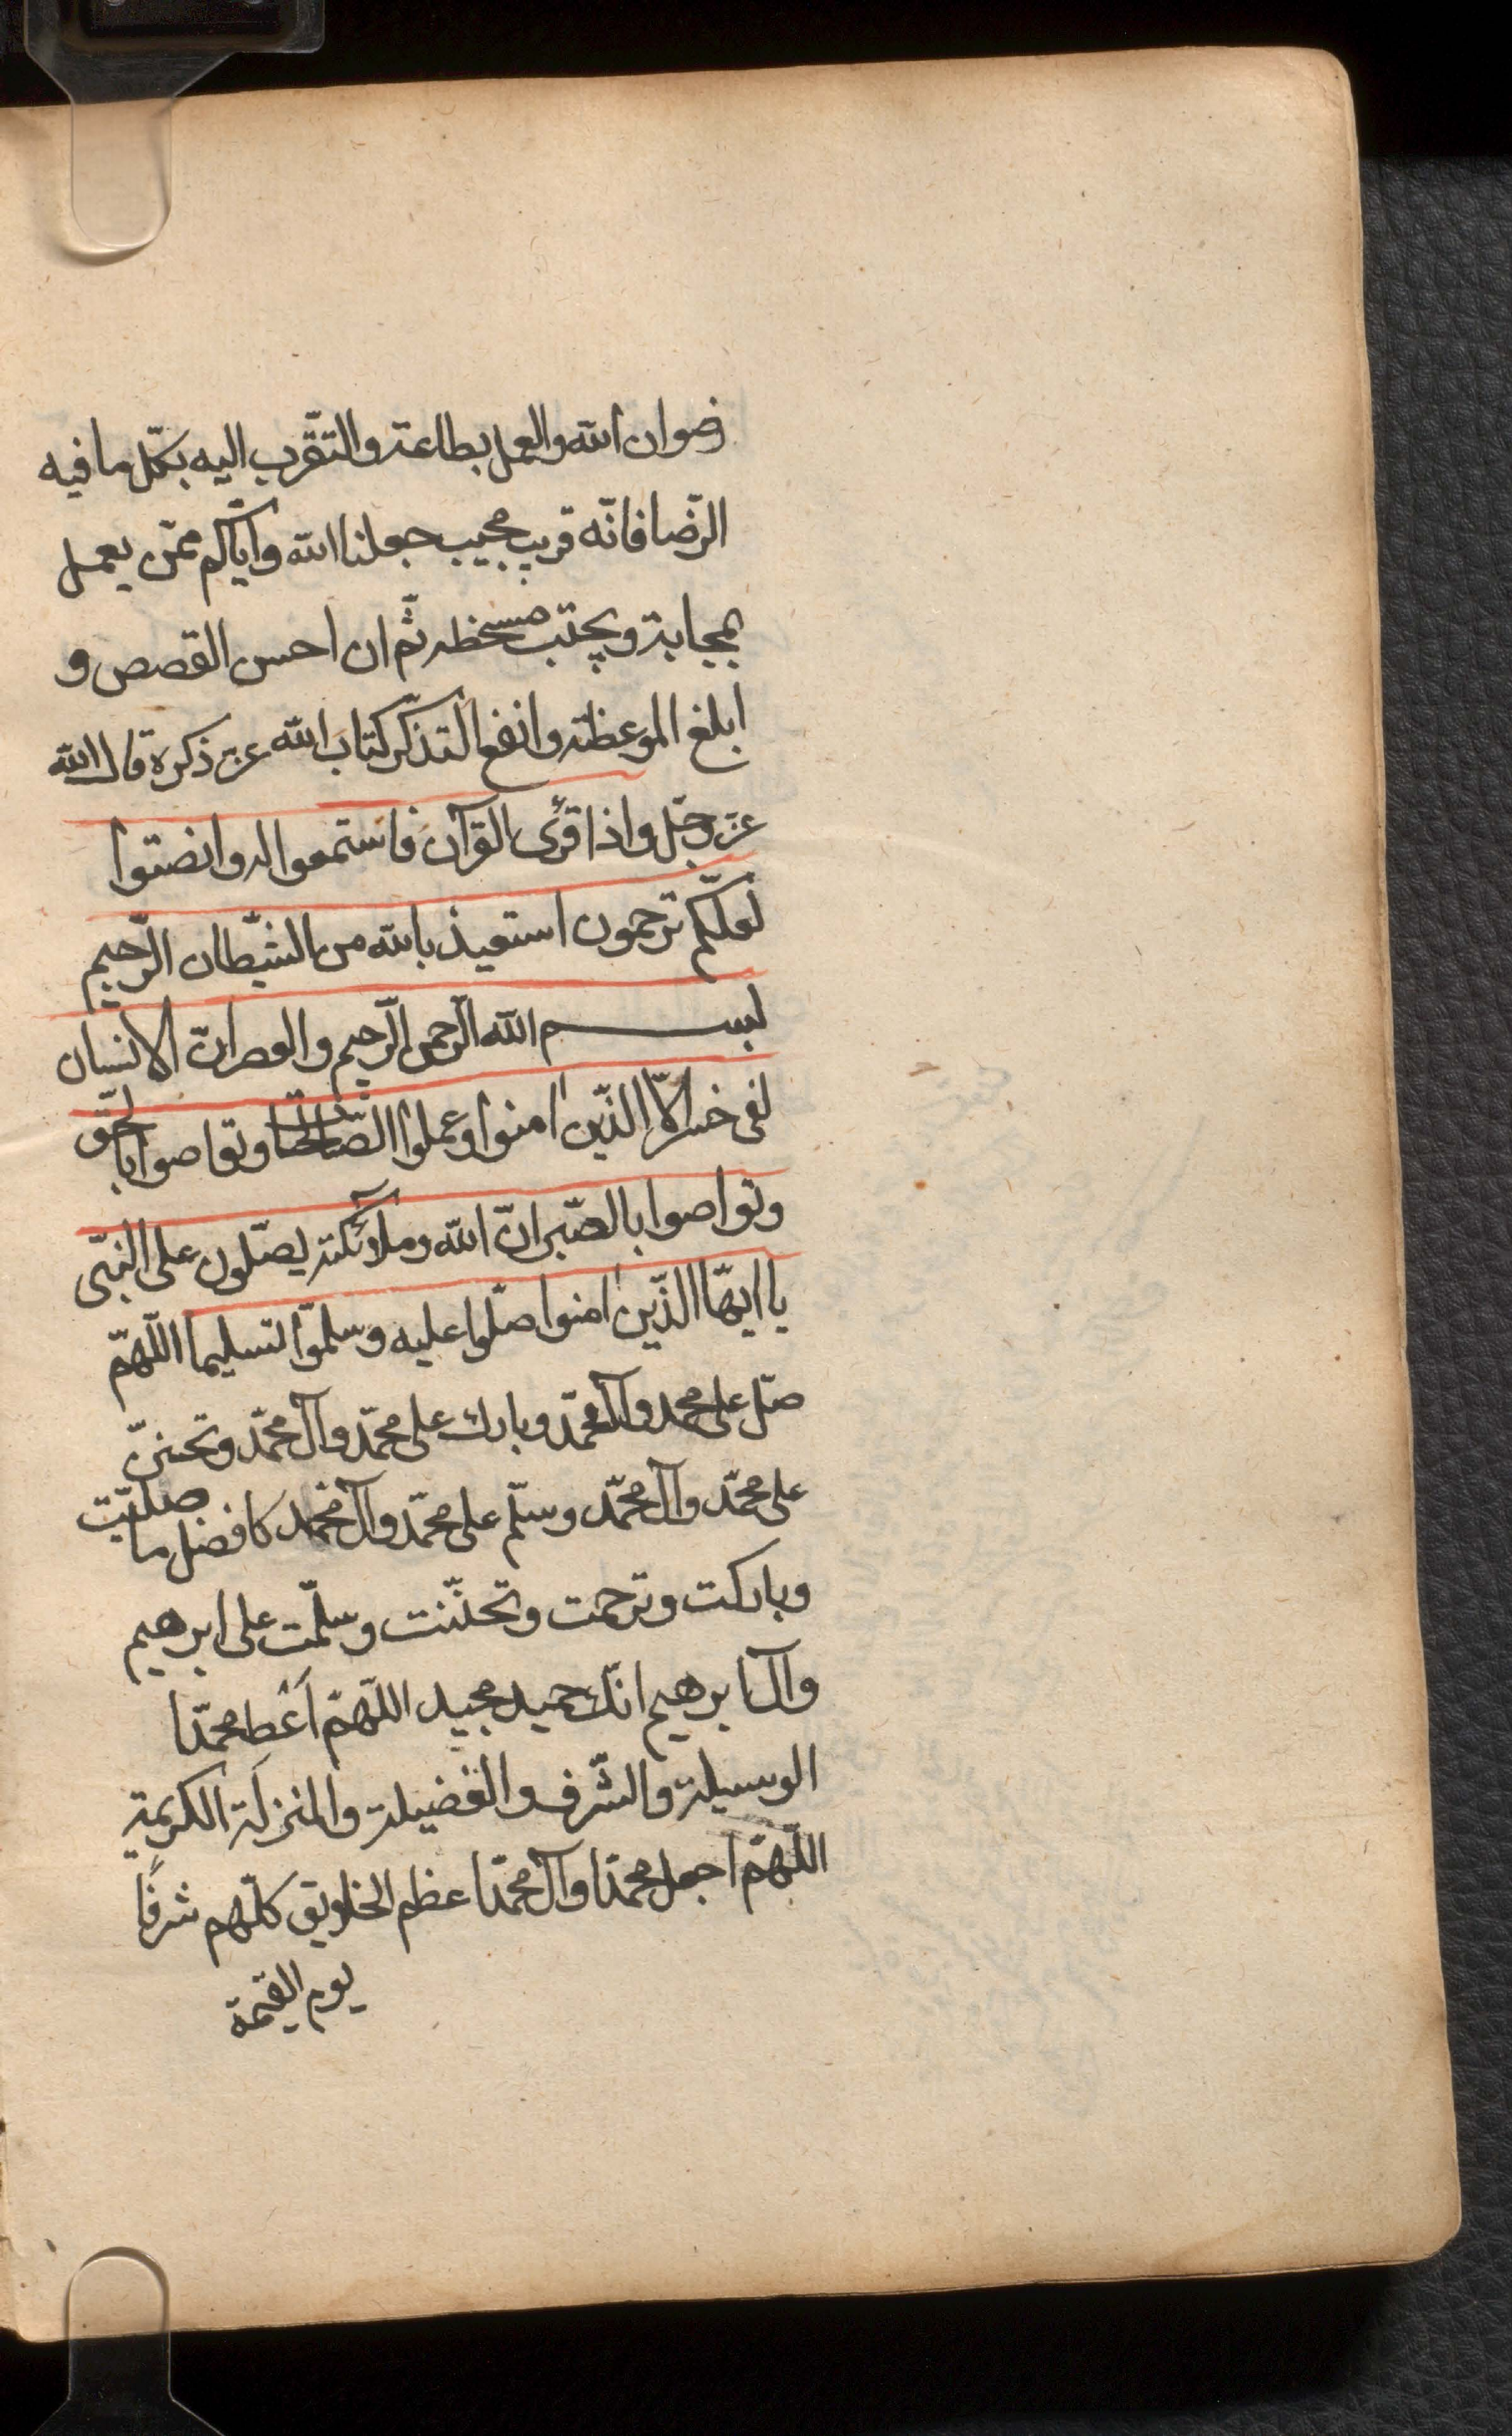 رضوان الله والعمل بطاعته والتقّرب اليه بكلّ ما فيه
الرّضا فانّه قريب مجيب جعلنا الله وايّاكم ممّن يعمل
بمحابه ويجتنب سخطه ثم ان احسن القصص و
ابلغ الموعظة وانفع التذكّر كتاب الله عز ذكره قال الله
عز وجلّ واذا قرئ القرآن فاستمعوا له وانصتوا
لعلّكم ترحمون استعيذ بالله من الشّيطان الرّجيم
بسم الله الرّحمن الرّحيم والعصر انّ الانسان
لفى خسر الّا الذّين امنوا وعملوا الصّالحات وتواصوا بالحّق
وتواصوا بالصّبر انّ الله وملائكته يصلّون على النبّى
يا ايهّا الذّين امنوا صلّوا عليه وسلمّوا تسليما اللّهمّ
صلّ على محمد وآل محمّد وبارك على محمّد وآل محمّد وتحنّن
على محمّد وآل محمّد وسلّم على محمّد وآل محمد كافضل ما صليّت
وباركت وترحمت وتحنّنت وسلّمت على ابرهيم
وآل ابرهيم انّك حميد مجيد اللّهمّ اَعْط محمّدا
الوسيلة والشّرف والفضيلة والمنزلة الكريمة
اللّهمّ اجعل محمّدا وآل محمّد اعظم الخلايق كلّهم شرفًا
يوم القيمة